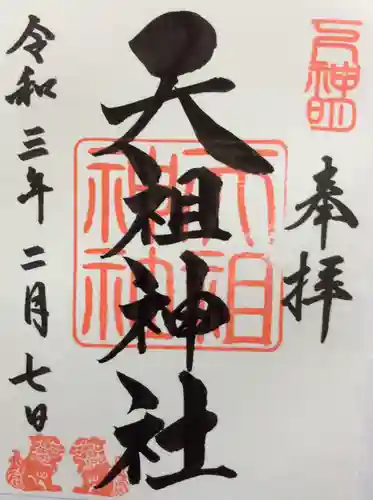 奉拝
天祖神社
天祖神社
令和三年二月七日